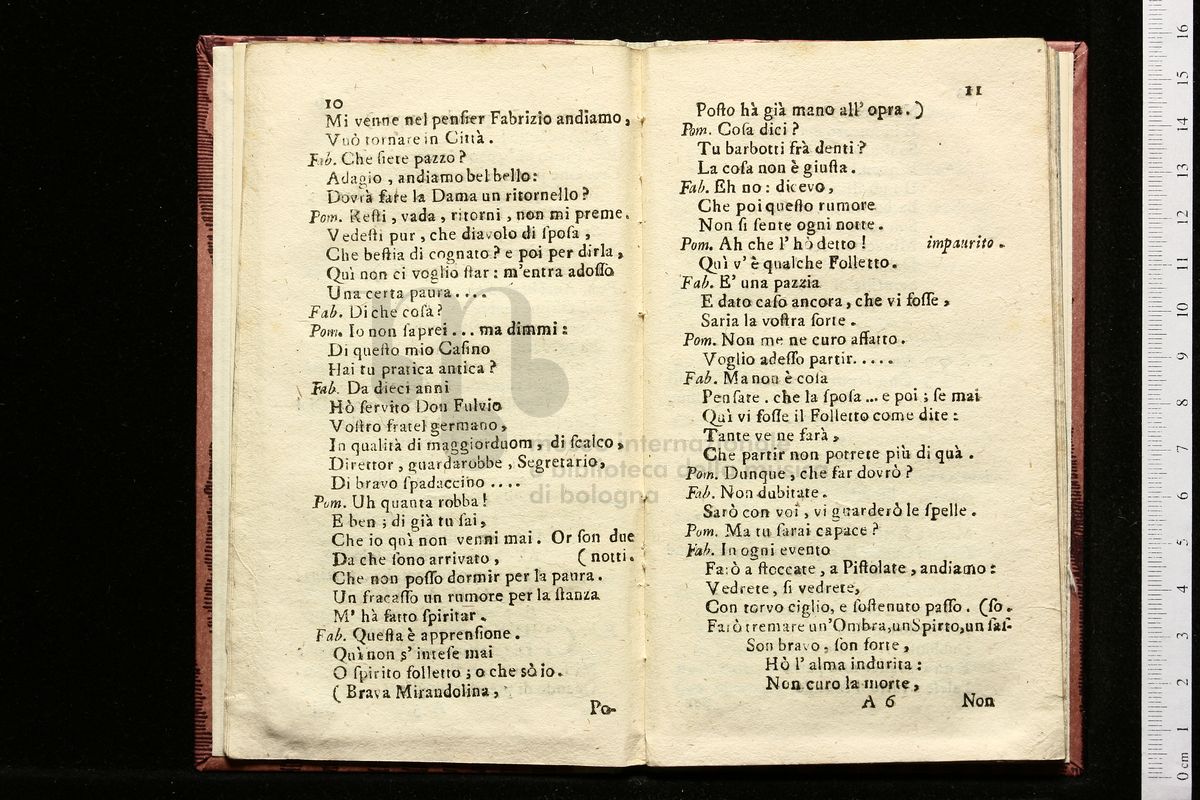 10
Mi venne nel pensier Fabrizio andiamo,
Vuò tornare in Città.
Fab. Che siete pazzo?
Adagio, andiamo bel bello:
Dovrà fare la Dama un ritornello?
Pom. Resti, vada, ritorni, non mi preme.
Vedesti pur, che diavolo di sposa,
Che bestia di cognato? e poi per dirla,
Quì non ci voglio star: m'entra adosso
Una certa paura....
Fab. Di che cosa?
Pom. Io non saprei... ma dimmi:
Di questo mio Casino
Hai tu pratica antica?
Fab. Da dieci anni
Hò servito Don Fulvio
Vostro fratel germano,
In qualità di maggiorduom, di scalco,
Direttor, guardarobbe, Segretario,
Di bravo spadaccino....
Pom. Uh quanta robba!
E ben; di già tu sai,
Che io quì non venni mai. Or son due
Da che sono arrivato, (notti.
Che non posso dormir per la paura.
Un fracasso un rumore per la stanza
M' hà fatto spiritar.
Fab. Questa è apprensione.
Quì non s' intese mai
O spirito folletto; o che sò io.
(Brava Mirandolina,
Po-
11
Posto hà già mano all' opra.)
Pom. Cosa dici?
Tu barbotti frà denti?
La cosa non è giusta.
Fab. Eh no: dicevo,
Che poi questo rumore
Non si sente ogni notte.
Pom. Ah che l' hò detto! impaurito.
Quì v' è qualche Folletto.
Fab. E' una pazzia
E dato caso ancora, che vi fosse,
Saria la vostra sorte.
Pom. Non me ne curo affatto.
Voglio adesso partir.....
Fab. Ma non è cosa
Pensate. che la sposa... e poi; se mai
Quì vi fosse il Folletto come dite:
Tante ve ne farà,
Che partir non potrete più di quà.
Pom. Dunque, che far dovrò?
Fab. Non dubitate.
Sarò con voi, vi guarderò le spelle.
Pom. Ma tu sarai capace?
Fab. In ogni evento
Farò a stoccate, a Pistolate, andiamo:
Vedrete, si vedrete,
Con torvo ciglio, e sostenuto passo. (so.
Farò tremare un'Ombra, un Spirto, un sas-
Son bravo, son forte,
Hò l' alma indurita:
Non curo la morte,
A 6 Non
museo internazionale
e biblioteca della musica
di bologna
0 cm 1 2 3 4 5 6 7 8 9 10 11 12 13 14 15 16